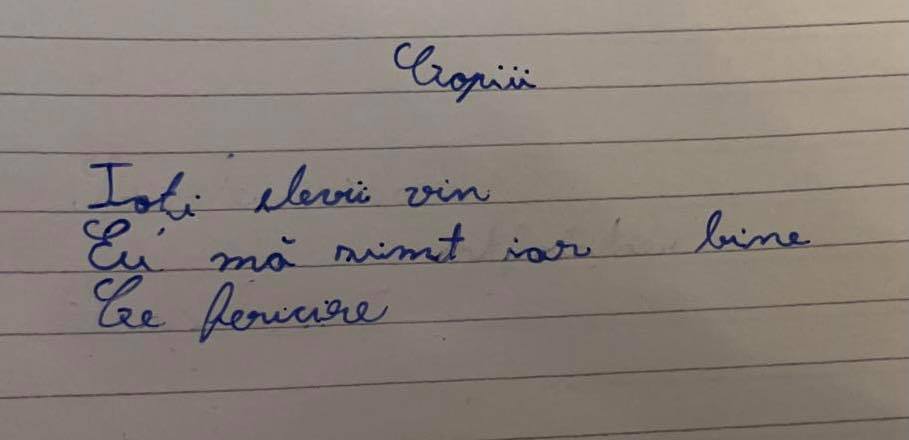 Copiii
Toți elevii vin
Eu mă simt iar bine
Ce fericire